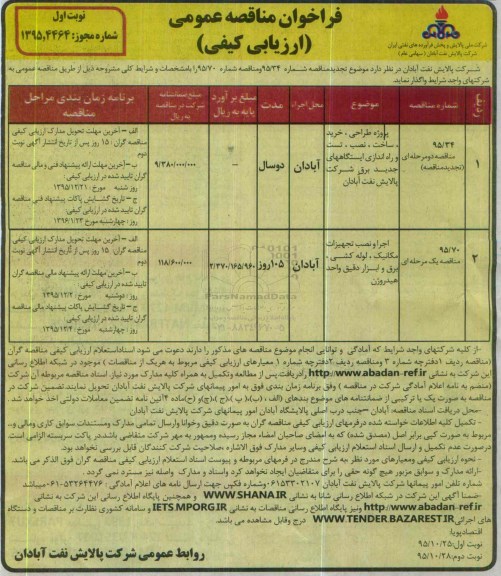 نوبت اول
شماره مجوز: ۱۳۹۵,۴۴۶۴
فراخوان مناقصه عمومی
(ارزیابی کیفی)
شرکت ملی پالایش و پخش فرآورده های نفتی ایران
شرکت پالایش نفت آبادان (سهامی عام)
شرکت پالایش نفت آبادان در نظر دارد موضوع تجدیدمناقصه شماره ۹۵/۳۴ ومناقصه شماره ۹۵/۷۰ را بامشخصات و شرایط کلی مشروحه ذیل از طریق مناقصه عمومی به
شرکتهای واجد شرایط واگذار نماید.
ردیف
شماره مناقصه
موضوع
محل اجراء
مدت
مبلغ بر آورد پایه به ریال
مبلغ ضمانتنامه شرکت در مناقصه به ریال
برنامه زمان بندی مراحل مناقصه
۱
۹۵/۳۴
مناقصه دومرحله ای
(تجدیدمناقصه)
پروژه طراحی، خرید
، ساخت ، نصب ، تست
و راه اندازی ایستگاههای
جدید برق شرکت
پالایش نفت آبادان
آبادان
دوسال
--
۹/۳۸۰/۰۰۰/۰۰۰
الف – آخرین مهلت تحویل مدارک ارزیابی کیفی
مناقصه گران : ۱۵ روز پس از تاریخ انتشار آگهی نوبت
دوم
ب – آخرین مهلت ارائه پیشنهاد فنی و مالی مناقصه
گران تایید شده در ارزیابی کیفی:
روز شنبه مورخ : ۱۳۹۵/۱۲/۲۱
ج – تاریخ گشایش پاکات پیشنهاد فنی مناقصه
گران تایید شده در ارزیابی کیفی:
روز : چهارشنبه مورخ : ۱۳۹۶/۱/۲۳
۲
۹۵/۷۰
مناقصه یک مرحله ای
اجرا و نصب تجهیزات
مکانیک ، لوله کشی ،
برق و ابزار دقیق واحد
هیدروژن
آبادان
۱۰۵روز
۲/۳۷۰/۱۶۵/۹۶۰
۱۱۸/۶۰۰/۰۰۰
الف – آخرین مهلت تحویل مدارک ارزیابی کیفی
مناقصه گران : ۱۵ روز پس از تاریخ انتشار آگهی نوبت
دوم
ب – آخرین مهلت ارائه پیشنهاد مالی مناقصه گران
تایید شده در ارزیابی کیفی:
روز : دوشنبه مورخ : ۱۳۹۵/۱۲/۲
ج – تاریخ گشایش پاکات پیشنهاد مالی مناقصه
گران تایید شده در ارزیابی کیفی:
روز : چهارشنبه مورخ : ۱۳۹۵/۱۲/۴
ParsNamadData
-از کلیه شرکتهای واجد شرایط که آمادگی و توانایی انجام موضوع مناقصه های مذکور را دارند دعوت می شود اسناداستعلام ارزیابی کیفی مناقصه گران
(مناقصه ردیف ۱دفترچه شماره ۲ ومناقصه ردیف ۲دفترچه شماره ۱ معیارهای ارزیابی کیفی مربوط به هریک از مناقصات ) موجود در شبکه اطلاع رسانی
این شرکت به نشانی http://www.abadan-ref.ir رادریافت پس از مطالعه وتکمیل به همراه کلیه مدارک مورد نیاز اسناد مناقصه مربوطه آن شرکت
(منضم به نامه اعلام آمادگی شرکت در مناقصه ) وفق برنامه زمان بندی فوق به امور پیمانهای شرکت پالایش نفت آبادان تحویل نمایند.تضمین شرکت در
مناقصه به صورت یک یا ترکیبی از ضمانتنامه های موضوع بندهای (الف ،ب،پ،ج،چ،ح) ماده ۴ آئین نامه تضمین معاملات دولتی اخذ خواهد شد.
-محل دریافت اسناد مناقصه: آبادان –جنب درب اصلی پالایشگاه آبادان امور پیمانهای شرکت پالایش نفت آبادان
- تکمیل کلیه اطلاعات خواسته شده درفرمهای ارزیابی کیفی مناقصه گران به صورت دقیق وخوانا وارسال تمامی مدارک ومستندات سوابق کاری ومالی و..
مربوط به صورت کپی برابر اصل (مصدق شده) که به امضای صاحبان امضاء مجاز رسیده وممهور به مهر شرکت متقاضی باشد،در پاکت سربسته الزامی است.
درصورت عدم تکمیل و ارسال اسناد استعلام ارزیابی کیفی وسایر مدارک فوق الاشاره ،صلاحیت شرکت کنندگان قابل بررسی نخواهد بود.
- نحوه ارزیابی کیفی ومعیارهای مورد نظر به شرح مندرج در فرمهای مربوطه و پیوست اسناد استعلام ارزیابی کیفی مناقصه گران فوق الذکر می باشد.
-ارائه مدارک و سوابق مزبور هیچ گونه حقی را برای متقاضیان ایجاد نخواهد کرد واسناد و مدارک واصله نیز مسترد نمی گردد .
شماره تلفن امور پیمانها شرکت پالایش نفت آبادان ۰۶۱۵۳۳۰۲۱۰۷ وشماره فکس جهت ارسال نامه های اعلام آمادگی : ۰۶۱-۵۳۲۶۴۴۷۶ میباشد
-ضمنا آگهی این شرکت در شبکه اطلاع رسانی شانا به نشانی WWW.SHANA.IR و همچنین پایگاه اطلاع رسانی این شرکت به نشانی
http://www.abadan-ref.ir ونیز پایگاه اطلاع رسانی مناقصات به نشانی IETS MPORG.IR و سامانه کشوری نظارت بر مناقصات و دستگاه
های اجرائی WWW.TENDER.BAZAREST.IR درج وقابل مشاهده می باشد.
اقتصادپویا:
نوبت اول:۹۵/۱۰/۲۵
نوبت دوم:۹۵/۱۰/۲۸
روابط عمومی شرکت پالایش نفت آبادان